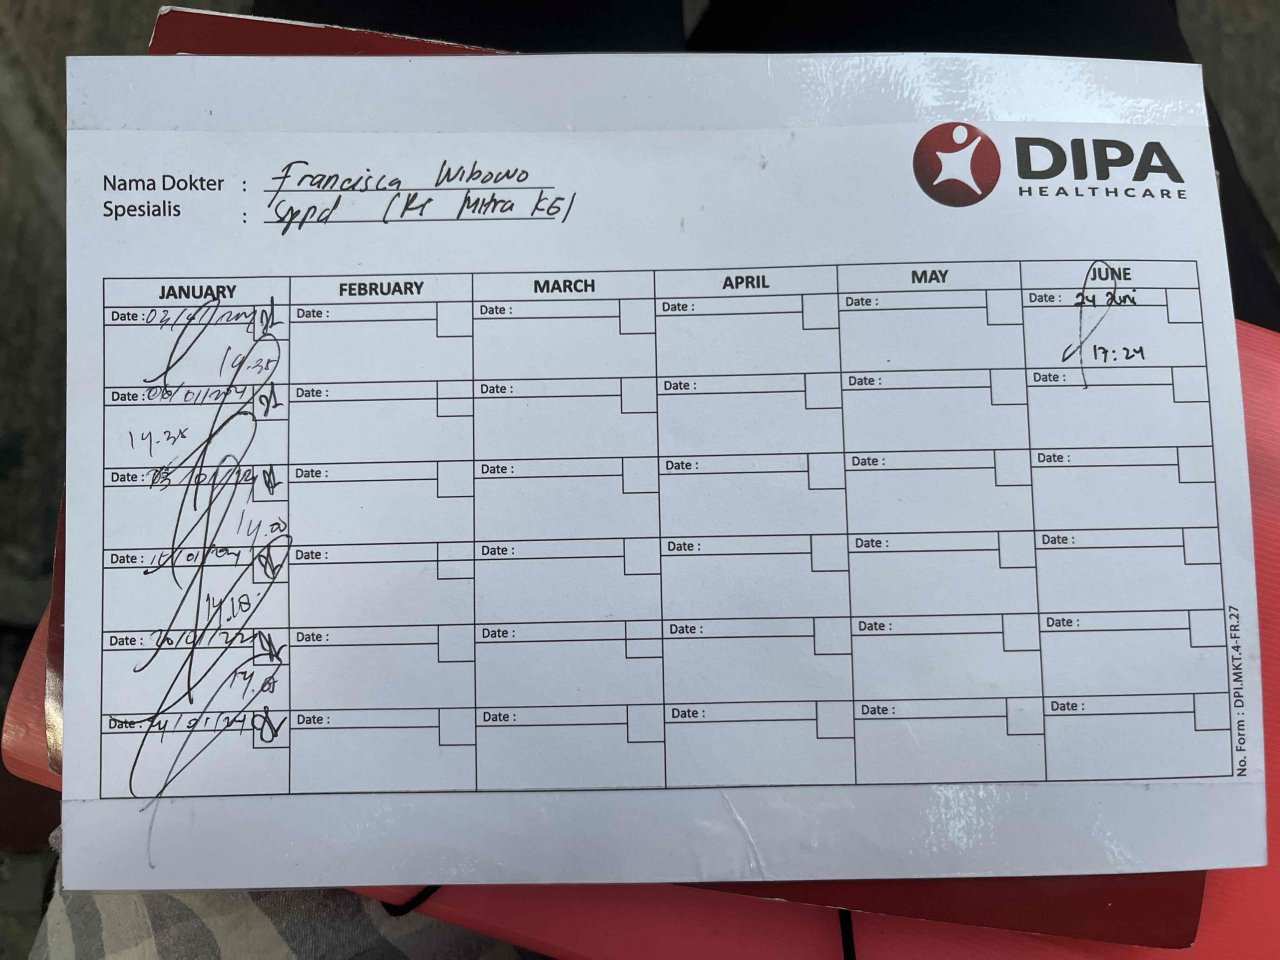 DIPA
HEALTHCARE
Nama Dokter : Francisca Wibowo
Spesialis : Sppd (RS Mitra KG)
JANUARY FEBRUARY MARCH APRIL MAY JUNE
Date : Date : Date : Date : Date : Date : 24 Juni
14.35 17:24
Date : Date : Date : Date : Date : Date :
14.35
Date : Date : Date : Date : Date : Date :
14.00
Date : Date : Date : Date : Date : Date :
14.18
Date : Date : Date : Date : Date : Date :
Date : Date : Date : Date : Date : Date :
No. Form : DPI.MKT.4-FR.27